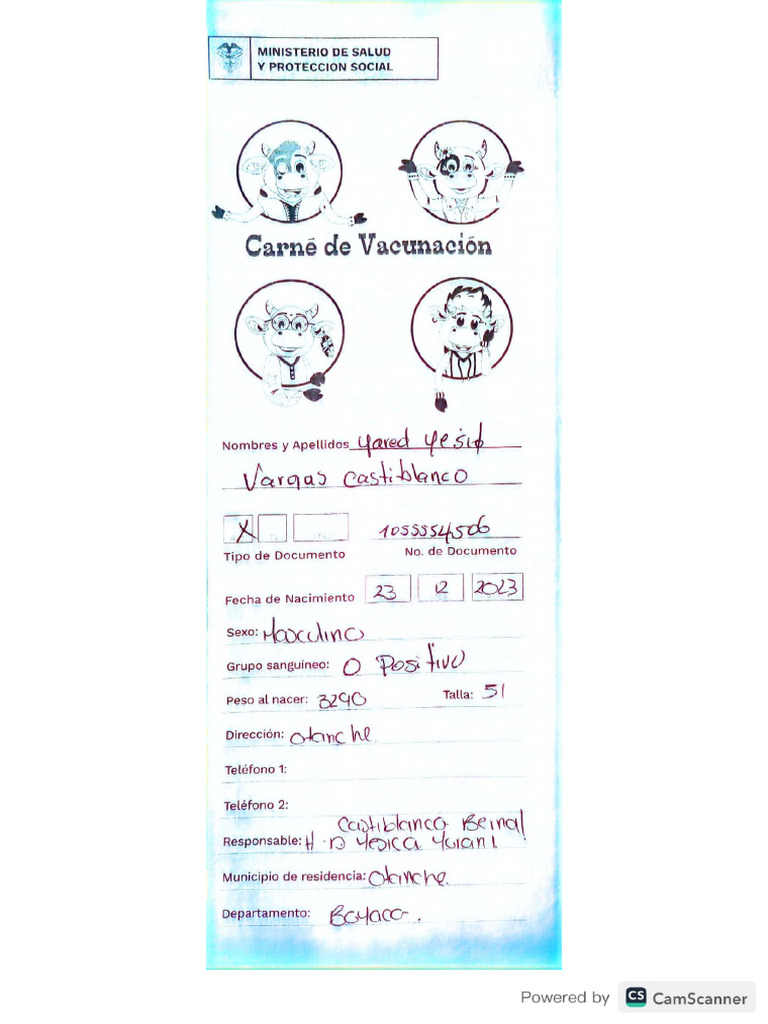 MINISTERIO DE SALUD
Y PROTECCION SOCIAL
Carné de Vacunación
Nombres y Apellidos Yared Yesid
Vargas Castiblanco
X
1055554506
Tipo de Documento No. de Documento
Fecha de Nacimiento 23 12 2023
Sexo: Masculino
Grupo sanguíneo: O Positivo
Peso al nacer: 3290 Talla: 51
Dirección: Otanche
Teléfono 1:
Teléfono 2:
Castiblanco Bernal
Responsable: Yesica Yuiani
Municipio de residencia: Otanche
Departamento: Boyaca.
Powered by CS CamScanner